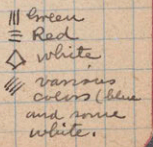 Green
Red
white
various
colors (blue
and some
white.